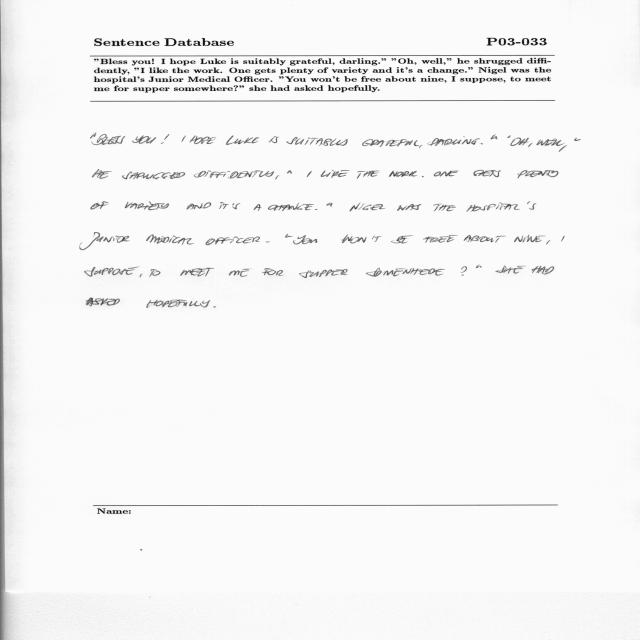 Sentence Database P03-033
"Bless you! I hope Luke is suitably grateful, darling." "Oh, well," he shrugged diffi-
dently, "I like the work. One gets plenty of variety and it's a change." Nigel was the
hospital's Junior Medical Officer. "You won't be free about nine, I suppose, to meet
me for supper somewhere?" she had asked hopefully.
"BLESS YOU! I HOPE LUKE IS SUITABLY GRATEFUL, DARLING." "OH, WELL,"
HE SHRUGGED DIFFIDENTLY, "I LIKE THE WORK. ONE GETS PLENTY
OF VARIETY AND IT'S A CHANGE." NIGEL WAS THE HOSPITAL'S
JUNIOR MEDICAL OFFICER. "YOU WON'T BE FREE ABOUT NINE, I
SUPPOSE, TO MEET ME FOR SUPPER SOMEWHERE?" SHE HAD
ASKED HOPEFULLY.
Name: